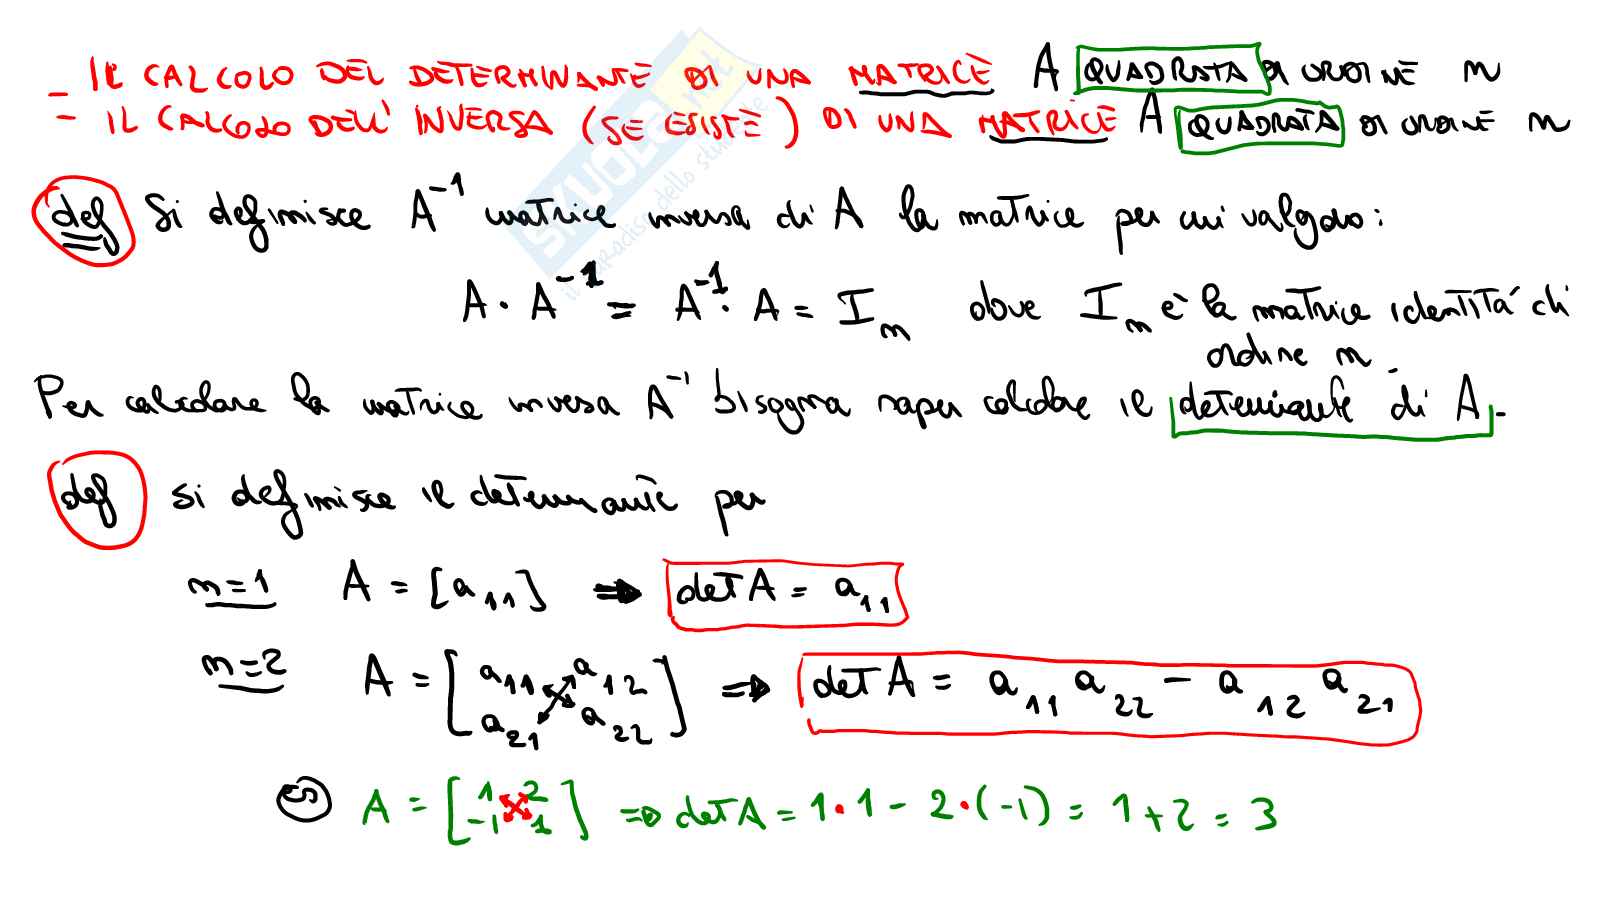 - IL CALCOLO DEL DETERMINANTE DI UNA MATRICE A QUADRATA DI ORDINE n
- IL CALCOLO DELL'INVERSA (SE ESISTE) DI UNA MATRICE A QUADRATA DI ORDINE n
def Si definisce A⁻¹ matrice inversa di A la matrice per cui valgono:
A · A⁻¹ = A⁻¹ · A = Iₙ dove Iₙ è la matrice identità di
ordine n.
Per calcolare la matrice inversa A⁻¹ bisogna saper calcolare il determinante di A.
def si definisce il determinante per
n=1 A = [a₁₁] ⇒ det A = a₁₁
n=2 A = [a₁₁ a₁₂
a₂₁ a₂₂] ⇒ det A = a₁₁ a₂₂ − a₁₂ a₂₁
es A = [1 2
-1 1] ⇒ det A = 1·1 − 2·(-1) = 1+2 = 3
SKUOLA.net
il paradiso dello studente